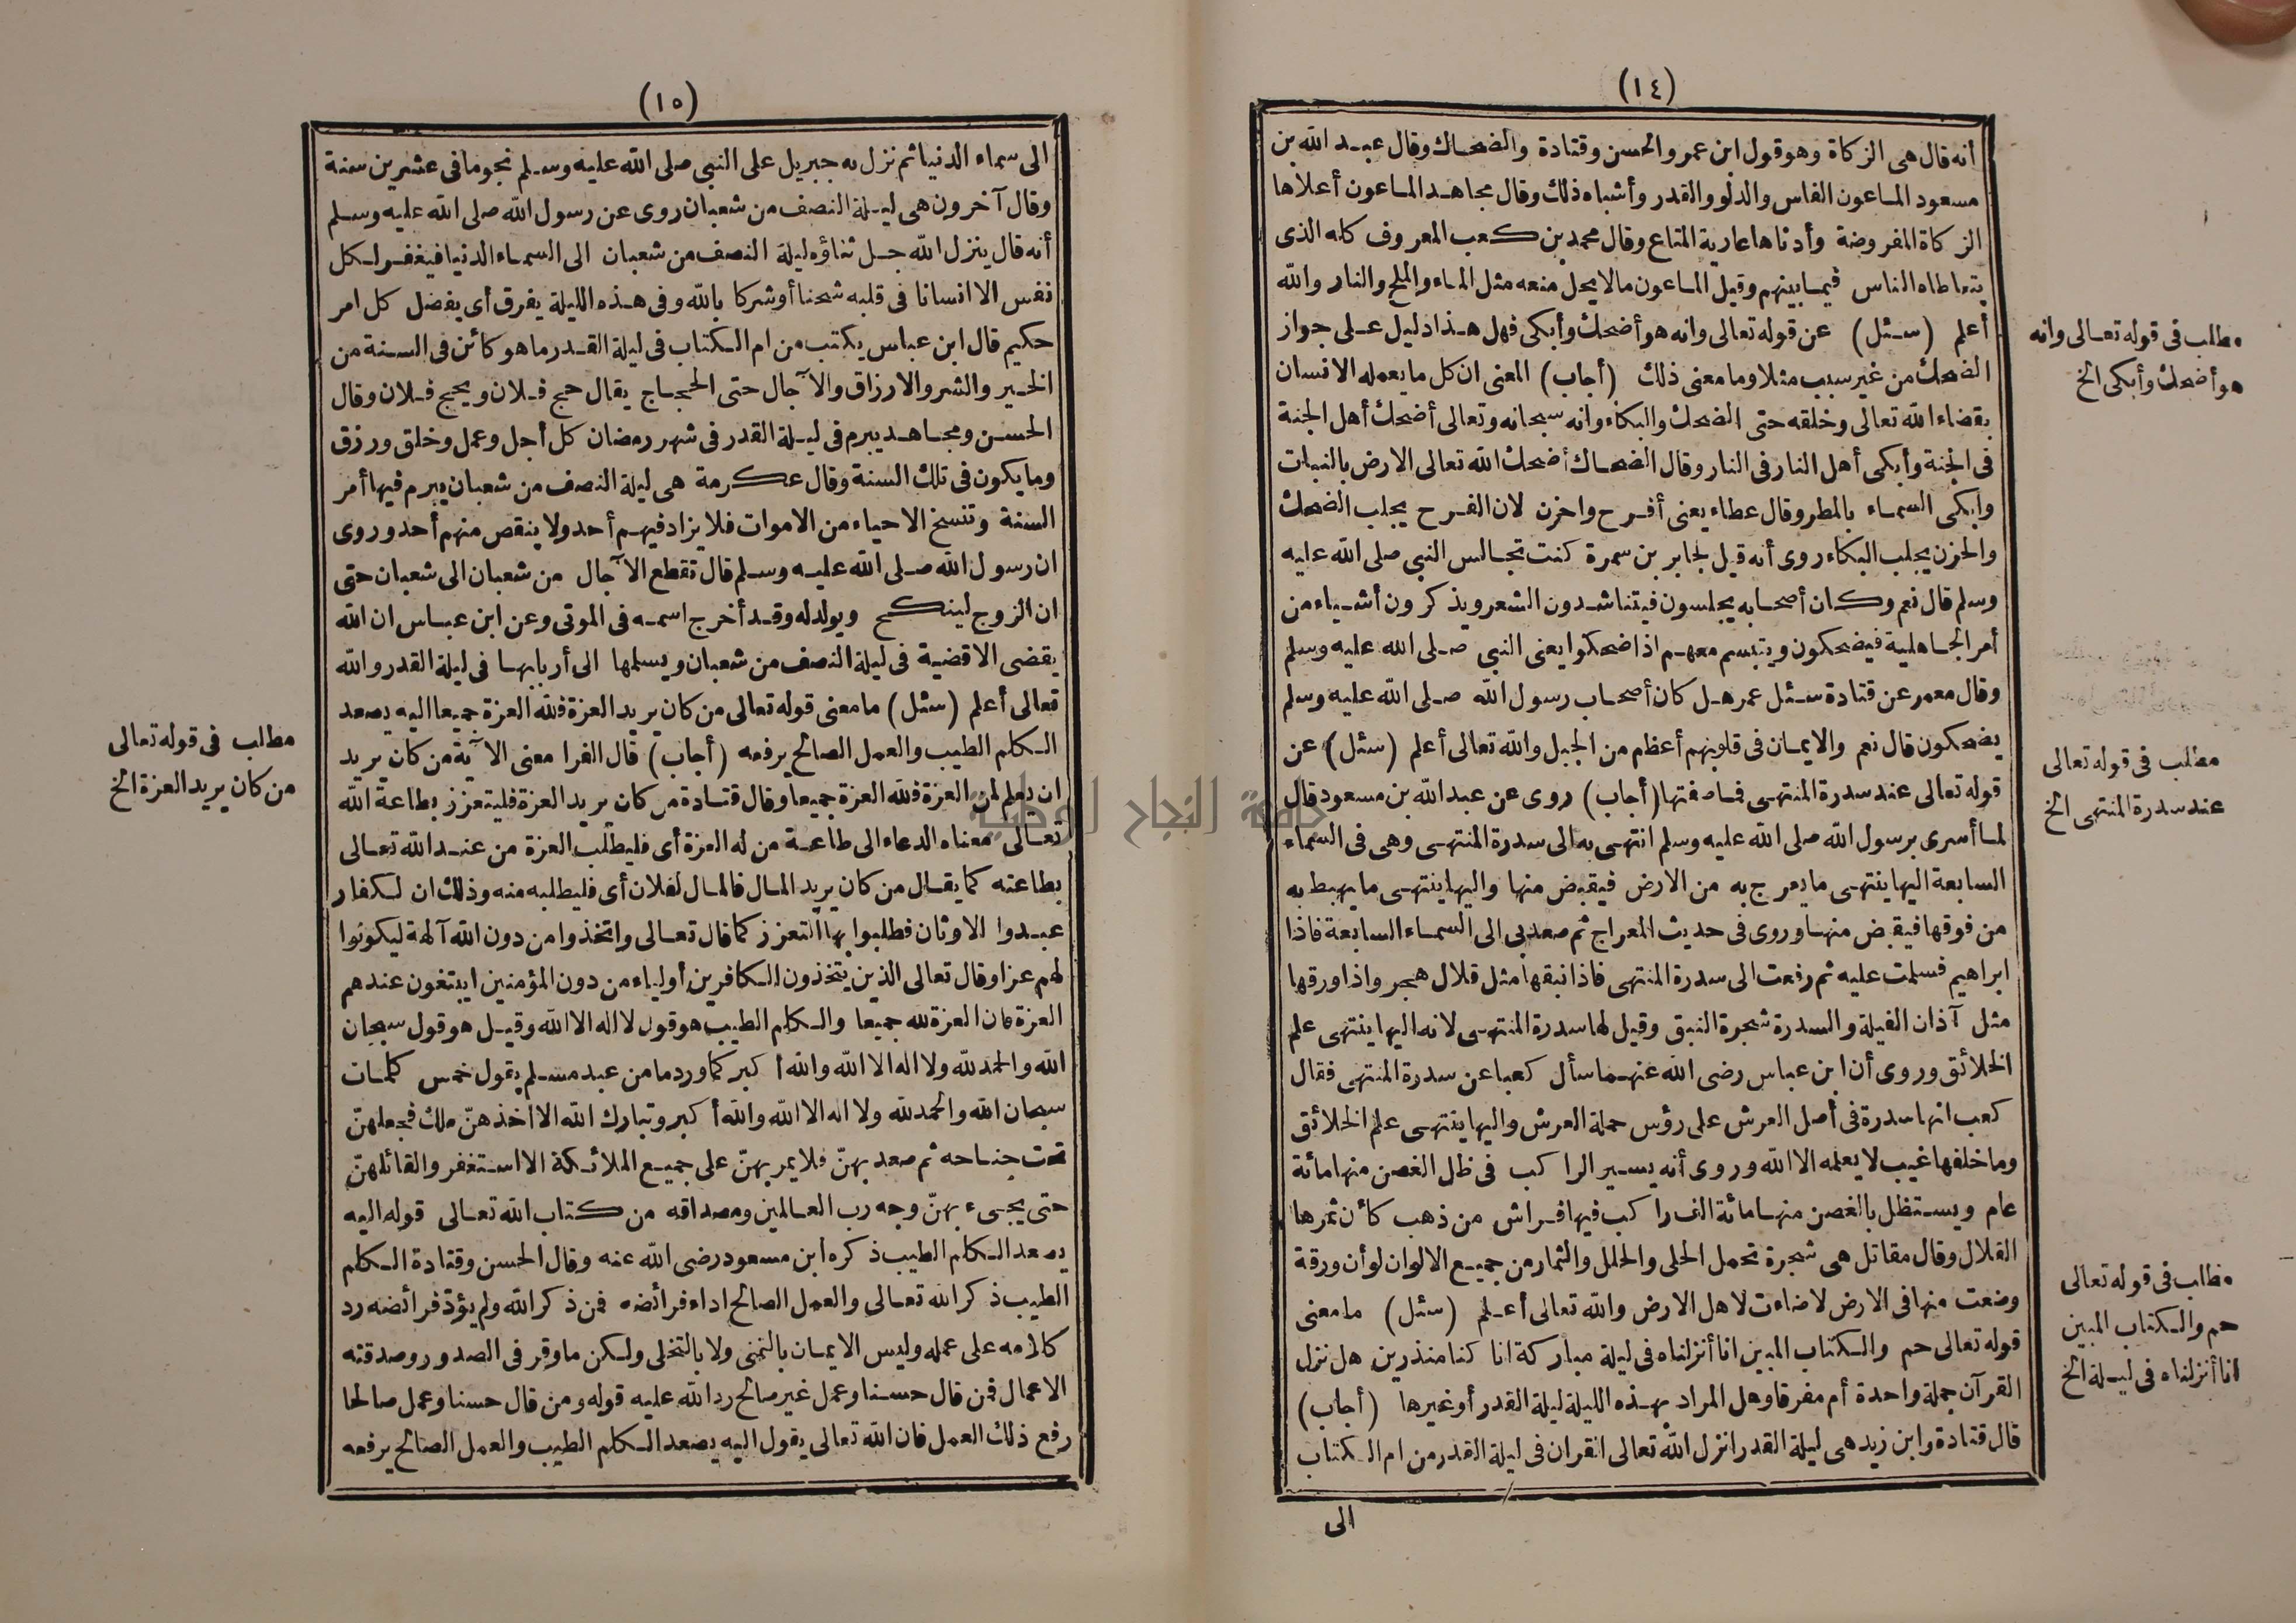 (١٤)
أنه قال هى الزكاة وهو قول ابن عمر والحسن وقتادة والضحاك وقال عبد الله بن
مسعود الماعون الفاس والدلو والقدر وأشباه ذلك وقال مجاهد الماعون أعلاها
الزكاة المفروضة وأدناها عارية المتاع وقال محمد بن كعب المعروف كله الذى
يتعاطاه الناس فيما بينهم وقيل الماعون مالا يحل منعه مثل الماء والملح والنار والله
أعلم (سئل) عن قوله تعالى وانه هو أضحك وأبكى فهل هذا دليل على جواز
الضحك من غير سبب مثلا وما معنى ذلك (أجاب) المعنى ان كل ما يعمله الانسان
بقضاء الله تعالى وخلقه حتى الضحك والبكاء وانه سبحانه وتعالى أضحك أهل الجنة
فى الجنة وأبكى أهل النار فى النار وقال الضحاك أضحك الله تعالى الارض بالنبات
وابكى السماء بالمطر وقال عطاء يعنى أفرح واحزن لان الفرح يجلب الضحك
والحزن يجلب البكاء روى أنه قيل لجابر بن سمرة كنت تجالس النبى صلى الله عليه
وسلم قال نعم وكان أصحابه يجلسون فيتناشدون الشعر ويذكرون أشياء من
أمر الجاهلية فيضحكون ويتبسم معهم اذا ضحكوا يعنى النبى صلى الله عليه وسلم
وقال معمر عن قتادة سئل عمر هل كان أصحاب رسول الله صلى الله عليه وسلم
يضحكون قال نعم والايمان فى قلوبهم أعظم من الجبل والله تعالى أعلم (سئل) عن
قوله تعالى عند سدرة المنتهى فما صفتها (أجاب) روى عن عبد الله بن مسعود قال
لما أسرى برسول الله صلى الله عليه وسلم انتهى به الى سدرة المنتهى وهى فى السماء
السابعة اليها ينتهى ما يعرج به من الارض فيقبض منها واليها ينتهى ما يهبط به
من فوقها فيقبض منها وروى فى حديث المعراج ثم صعد بى الى السماء السابعة فاذا
ابراهيم فسلمت عليه ثم رفعت الى سدرة المنتهى فاذا نبقها مثل قلال هجر واذا ورقها
مثل آذان الفيلة والسدرة شجرة النبق وقيل لها سدرة المنتهى لانه اليها ينتهى علم
الخلائق وروى أن ابن عباس رضى الله عنهما سأل كعبا عن سدرة المنتهى فقال
كعب انها سدرة فى أصل العرش على رؤس حملة العرش واليها ينتهى علم الخلائق
وما خلفها غيب لا يعلمه الا الله وروى أنه يسير الراكب فى ظل الغصن منها مائة
عام ويستظل بالغصن منها مائة الف راكب فيها فراش من ذهب كأن ثمرها
القلال وقال مقاتل هى شجرة تحمل الحلى والحلل والثمار من جميع الالوان لو أن ورقة
وضعت منها فى الارض لاضاءت لاهل الارض والله تعالى أعلم (سئل) ما معنى
قوله تعالى حم والكتاب المبين انا أنزلناه فى ليلة مباركة انا كنا منذرين هل نزل
القرآن جملة واحدة أم مفرقا وهل المراد بهذه الليلة ليلة القدر أو غيرها (أجاب)
قال قتادة وابن زيد هى ليلة القدر انزل الله تعالى القران فى ليلة القدر من ام الكتاب
الى
مطلب فى قوله تعالى وانه
هو أضحك وأبكى الخ
مطلب فى قوله تعالى
عند سدرة المنتهى الخ
مطلب فى قوله تعالى
حم والكتاب المبين
انا أنزلناه فى ليلة الخ
(١٥)
الى سماء الدنيا ثم نزل به جبريل على النبى صلى الله عليه وسلم نجوما فى عشرين سنة
وقال آخرون هى ليلة النصف من شعبان روى عن رسول الله صلى الله عليه وسلم
أنه قال ينزل الله جل ثناؤه ليلة النصف من شعبان الى السماء الدنيا فيغفر لكل
نفس الا انسانا فى قلبه شحنا أو شركا بالله وفى هذه الليلة يفرق أى يفصل كل امر
حكيم قال ابن عباس يكتب من ام الكتاب فى ليلة القدر ما هو كائن فى السنة من
الخير والشر والارزاق والآجال حتى الحجاج يقال حج فلان ويحج فلان وقال
الحسن ومجاهد يبرم فى ليلة القدر فى شهر رمضان كل أجل وعمل وخلق ورزق
وما يكون فى تلك السنة وقال عكرمة هى ليلة النصف من شعبان يبرم فيها أمر
السنة وتنسخ الاحياء من الاموات فلا يزاد فيهم أحد ولا ينقص منهم أحد وروى
ان رسول الله صلى الله عليه وسلم قال تقطع الآجال من شعبان الى شعبان حتى
ان الزوج لينكح ويولد له وقد أخرج اسمه فى الموتى وعن ابن عباس ان الله
يقضى الاقضية فى ليلة النصف من شعبان ويسلمها الى أربابها فى ليلة القدر والله
تعالى أعلم (سئل) ما معنى قوله تعالى من كان يريد العزة فلله العزة جميعا اليه يصعد
الكلم الطيب والعمل الصالح يرفعه (أجاب) قال الفرا معنى الآية من كان يريد
ان يعلم لمن العزة فلله العزة جميعا وقال قتادة من كان يريد العزة فليتعزز بطاعة الله
تعالى معناه الدعاء الى طاعة من له العزة أى فليطلب العزة من عند الله تعالى
بطاعته كما يقال من كان يريد المال فالمال لفلان أى فليطلبه منه وذلك ان لكفار
عبدوا الاوثان فطلبوا بها التعزز كما قال تعالى واتخذوا من دون الله آلهة ليكونوا
لهم عزا وقال تعالى الذين يتخذون الكافرين أولياء من دون المؤمنين ايبتغون عندهم
العزة فان العزة لله جميعا والكلم الطيب هو قول لا اله الا الله وقيل هو قول سبحان
الله والحمد لله ولا اله الا الله والله أكبر كما ورد ما من عبد مسلم يقول خمس كلمات
سبحان الله والحمد لله ولا اله الا الله والله أكبر وتبارك الله الا اخذهنّ ملك فجعلهنّ
تحت جناحه ثم صعد بهنّ فلا يمر بهنّ على جميع الملائكة الا استغفر والقائلهنّ
حتى يجىء بهنّ وجه رب العالمين ومصداقه من كتاب الله تعالى قوله اليه
يصعد الكلم الطيب ذكره ابن مسعود رضى الله عنه وقال الحسن وقتادة الكلم
الطيب ذكر الله تعالى والعمل الصالح اداء فرائضه فمن ذكر الله ولم يؤد فرائضه رد
كلامه على عمله وليس الايمان بالتمنى ولا بالتخلى ولكن ما وقر فى الصدور وصدقته
الاعمال فمن قال حسنا وعمل غير صالح رد الله عليه قوله ومن قال حسنا وعمل صالحا
رفع ذلك العمل فان الله تعالى يقول اليه يصعد الكلم الطيب والعمل الصالح يرفعه
مطلب فى قوله تعالى
من كان يريد العزة الخ
جامعة النجاح الوطنية